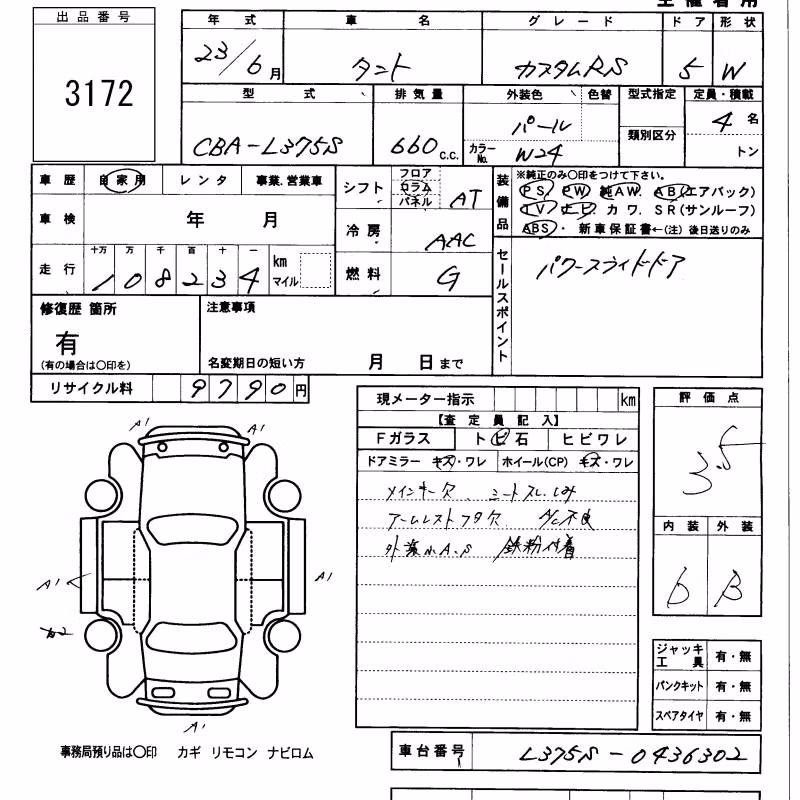 出品番号
3172
年式 車名 グレード ドア 形状
23/6月 タント カスタムRS 5 W
型式 排気量 外装色 色替 型式指定 定員・積載
CBA-L375S 660c.c. パール 類別区分 4名
カラーNo. W24 トン
車歴 自家用 レンタ 事業.営業車
車検 年 月
走行 十万 万 千 百 十 一
108234 km マイル
シフト フロア コラム パネル AT
冷房 AAC
燃料 G
装備品
※純正のみ〇印をつけて下さい。
PS PW 純AW. AB(エアバック)
TV ナビ カワ. SR(サンルーフ)
ABS・ 新車保証書←(注)後日送りのみ
セールスポイント
パワースライドドア
修復歴 箇所
有
(有の場合は〇印を)
注意事項
名変期日の短い方 月 日まで
リサイクル料 9790円
現メーター指示 km
【査定員記入】
Fガラス トビ石 ヒビワレ
ドアミラー キズ・ワレ ホイール(CP) キズ・ワレ
メインキー欠 シートスレ.しみ
アームレストフタ欠 A/C不良
外装小A.S 鉄粉付着
評価点
3.5
内装 外装
D B
A1 A1
A1 A1
A2
A1
ジャッキ工具 有・無
パンクキット 有・無
スペアタイヤ 有・無
事務局預り品は〇印 カギ リモコン ナビロム
車台番号 L375S-0436302